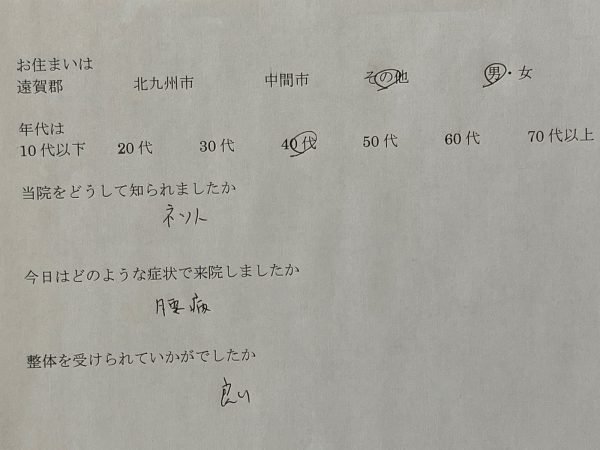 お住まいは
遠賀郡 北九州市 中間市 その他 男・女
年代は
10代以下 20代 30代 40代 50代 60代 70代以上
当院をどうして知られましたか
ネット
今日はどのような症状で来院しましたか
腰痛
整体を受けられていかがでしたか
良い